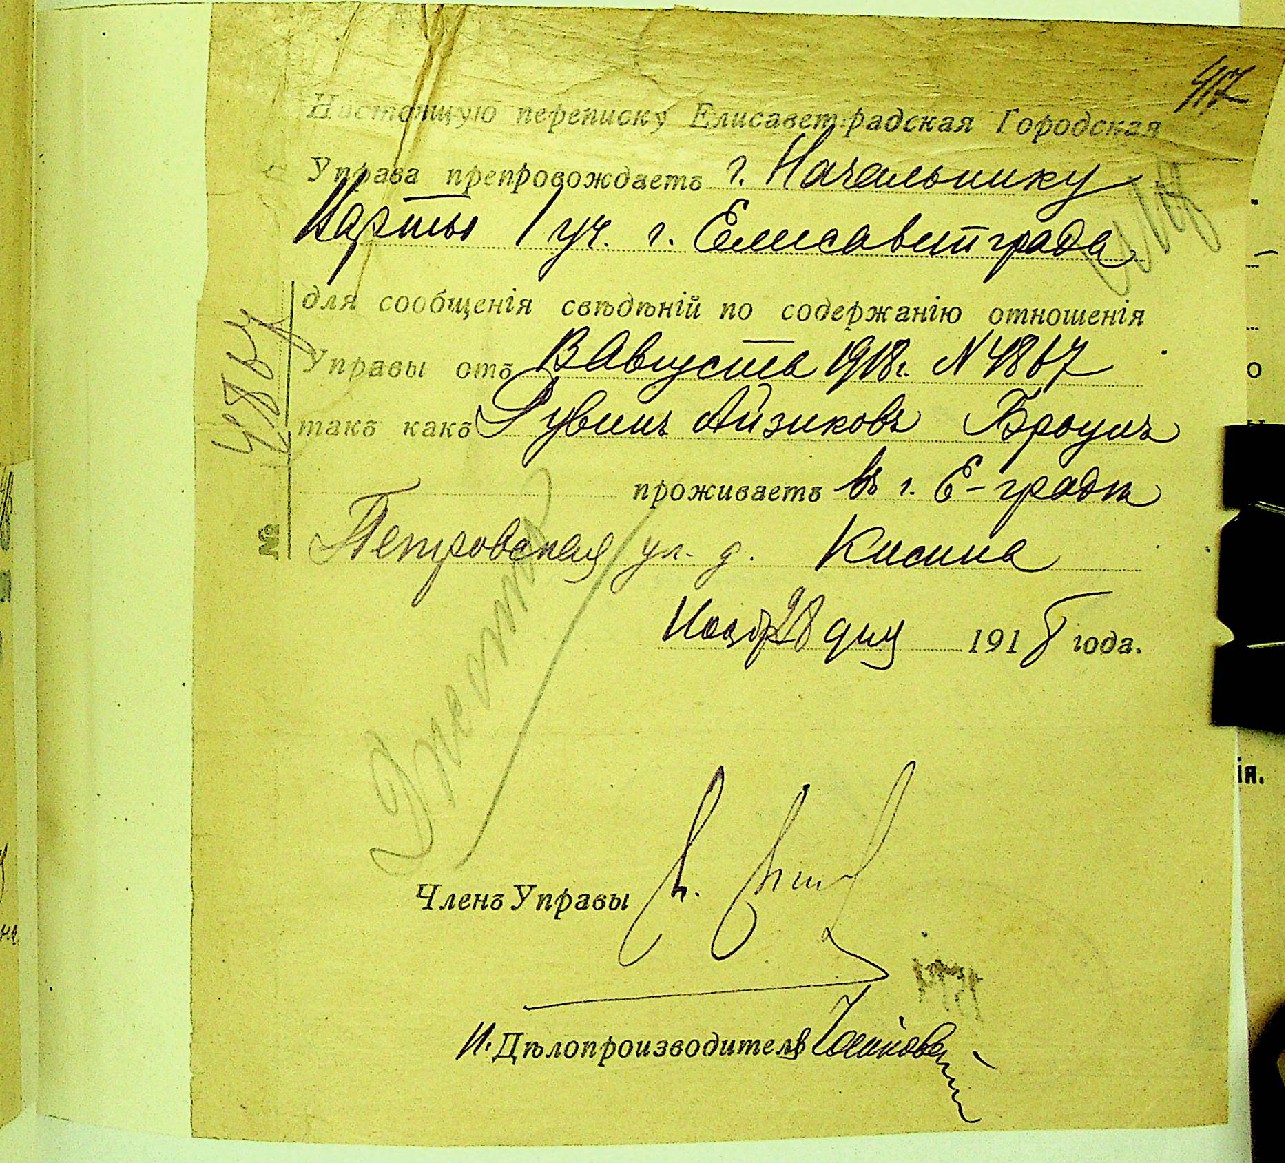 417
Настоящую переписку Елисаветградская Городская
Управа препровождаетъ г. Начальнику
Варты 1 уч. г. Елисаветграда
для сообщенія свѣдѣній по содержанію отношенія
Управы отъ 3 Августа 1918 г. № 4867
такъ какъ Рувинъ Айзиковъ
проживаетъ въ г. Е-градѣ
Петровская ул. д. Кисина
Ноябр 28 дня 1918 года.
№ 4867
Членъ Управы
И. Дѣлопроизводителя
ія.